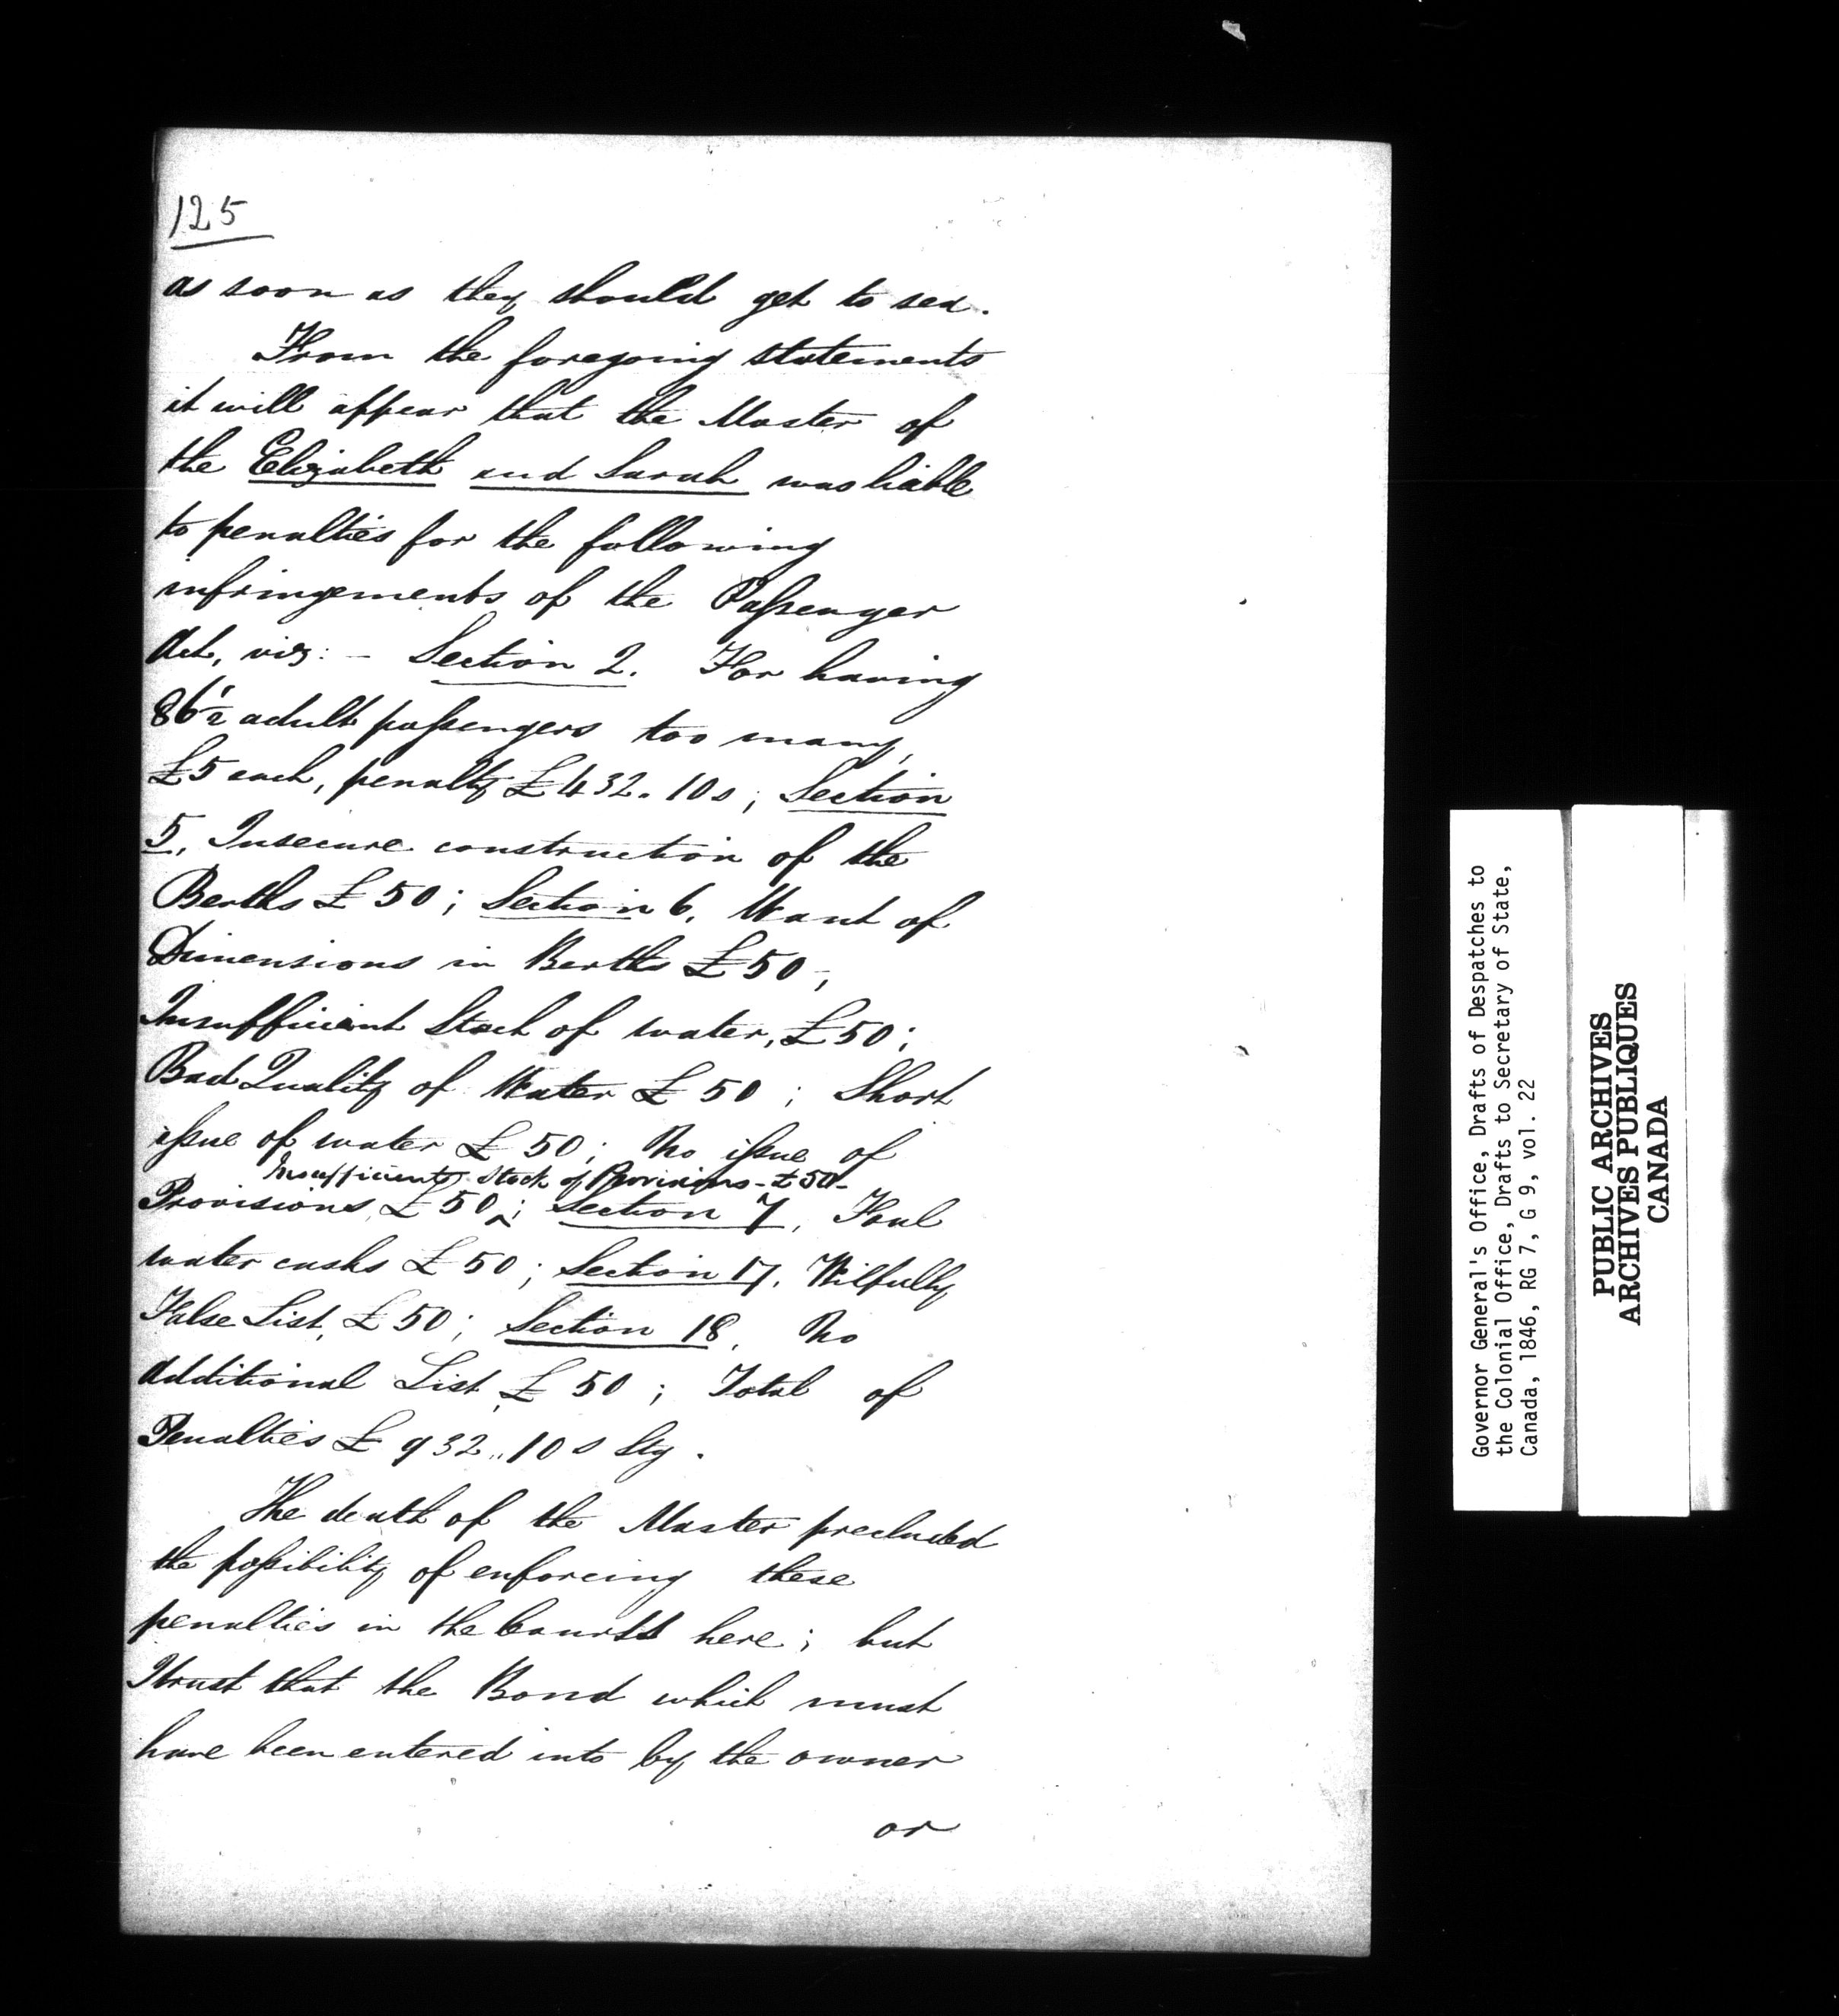 125
as soon as they should get to sea.
From the foregoing statements
it will appear that the Master of
the Elizabeth and Sarah was liable
to penalties for the following
infringements of the Passenger
Act, viz: - Section 2. For having
86½ adult passengers too many,
£5 each, penalty £432.10s; Section
5, Insecure construction of the
Berths £50; Section 6, Want of
Dimensions in Berths £50;
Insufficient Stock of water, £50;
Bad Quality of Water £50; Short
issue of water £50; No issue of
Insufficient Stock of Provisions - £50 -
Provisions, £50; Section 7, Foul
water casks £50; Section 17, Wilfully
False List, £50; Section 18, No
additional List, £50; Total of
Penalties £932..10s Stg.
The death of the Master precluded
the possibility of enforcing these
penalties in the Courts here; but
I trust that the Bond which must
have been entered into by the owner
or
Governor General's Office, Drafts of Despatches to
the Colonial Office, Drafts to Secretary of State,
Canada, 1846, RG 7, G 9, vol. 22
PUBLIC ARCHIVES
ARCHIVES PUBLIQUES
CANADA